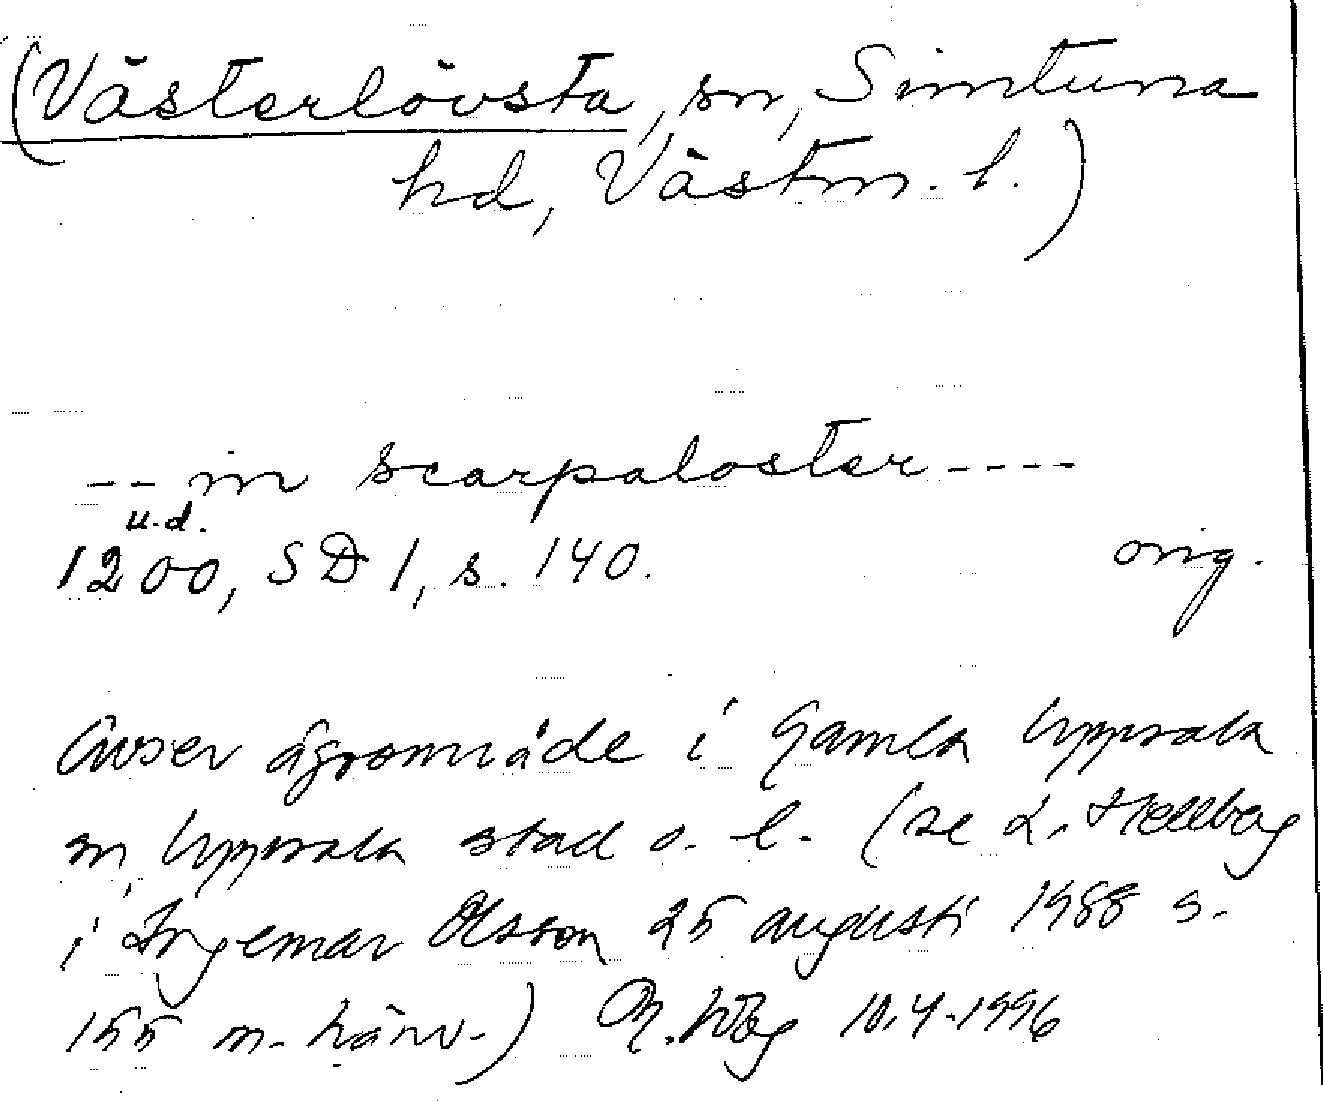 (Västerlövsta, sn, Simtuna
hd, Västm. l.)
-- in scarpaloster ----
u.d.
1200, SD 1, s. 140. orig.
Avser ägoområde i Gamla Uppsala
sn, Uppsala stad o. l. (se L. Hellberg
i Ingemar Olsson 25 augusti 1988 s.
155 m. hänv.) 10.4.1996